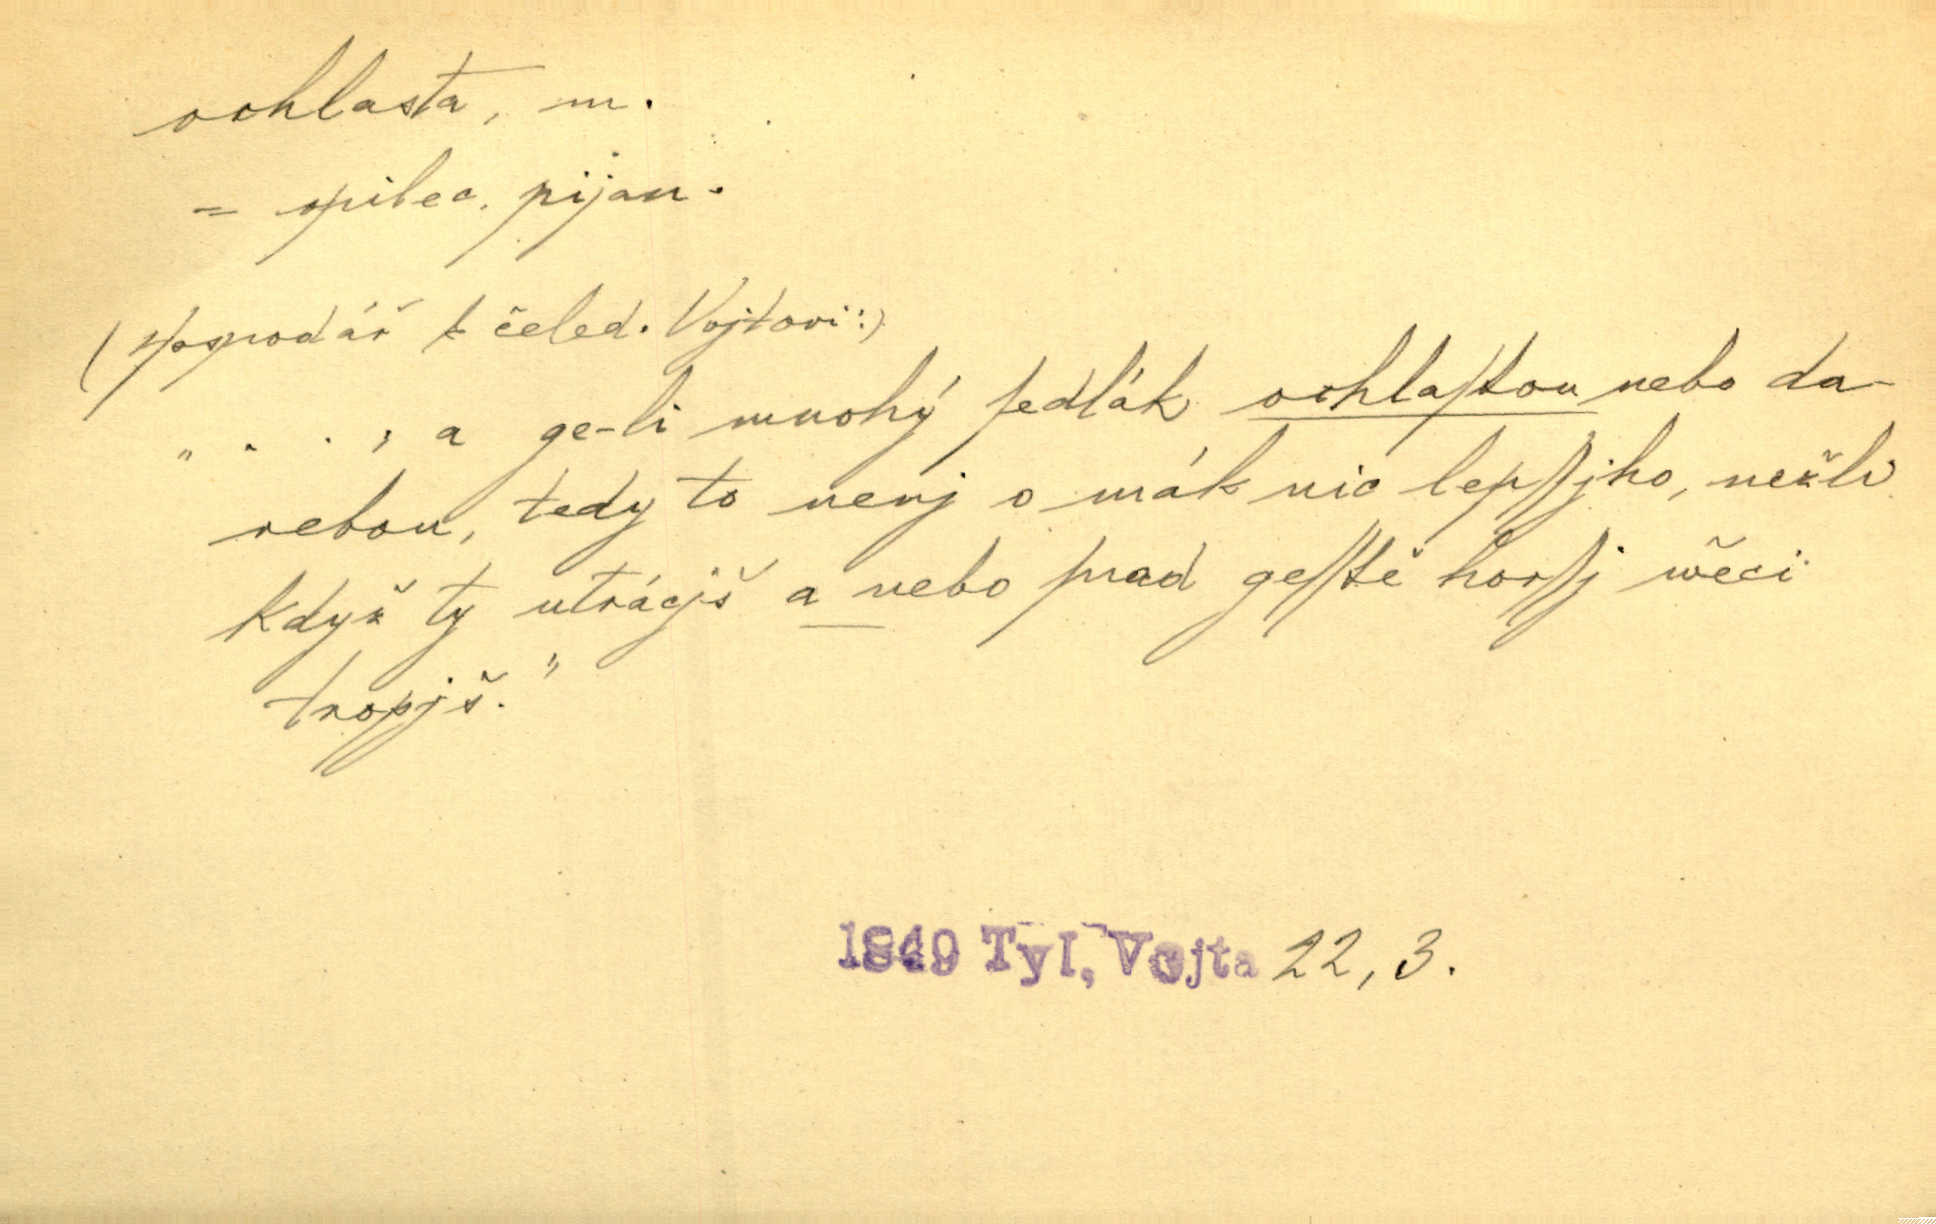 ochlasta, m.
= opilec, pijan.
(Hospodář k čeled. Vojtovi:)
„ . . ; a ge-li mnohý ſedlák ochlaſtou nebo da-
rebou, tedy to nenj o mák nic lepſſjho, nežli
když ty utrácjš a nebo ſnad geſſtě horſſj wěci
tropjš."
1849 Tyl, Vojta 22, 3.